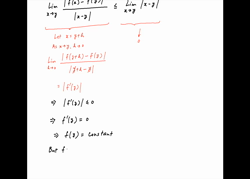 Lim x→y |f(x) - f(y)| / |x-y| ≤ Lim x→y |x-y|
Let x = y+h
As x→y, h→0
Lim h→0 |f(y+h) - f(y)| / |y+h-y|
= |f'(y)|
⇒ |f'(y)| ≤0
⇒ f'(y) = 0
⇒ f(y) = constant
But f